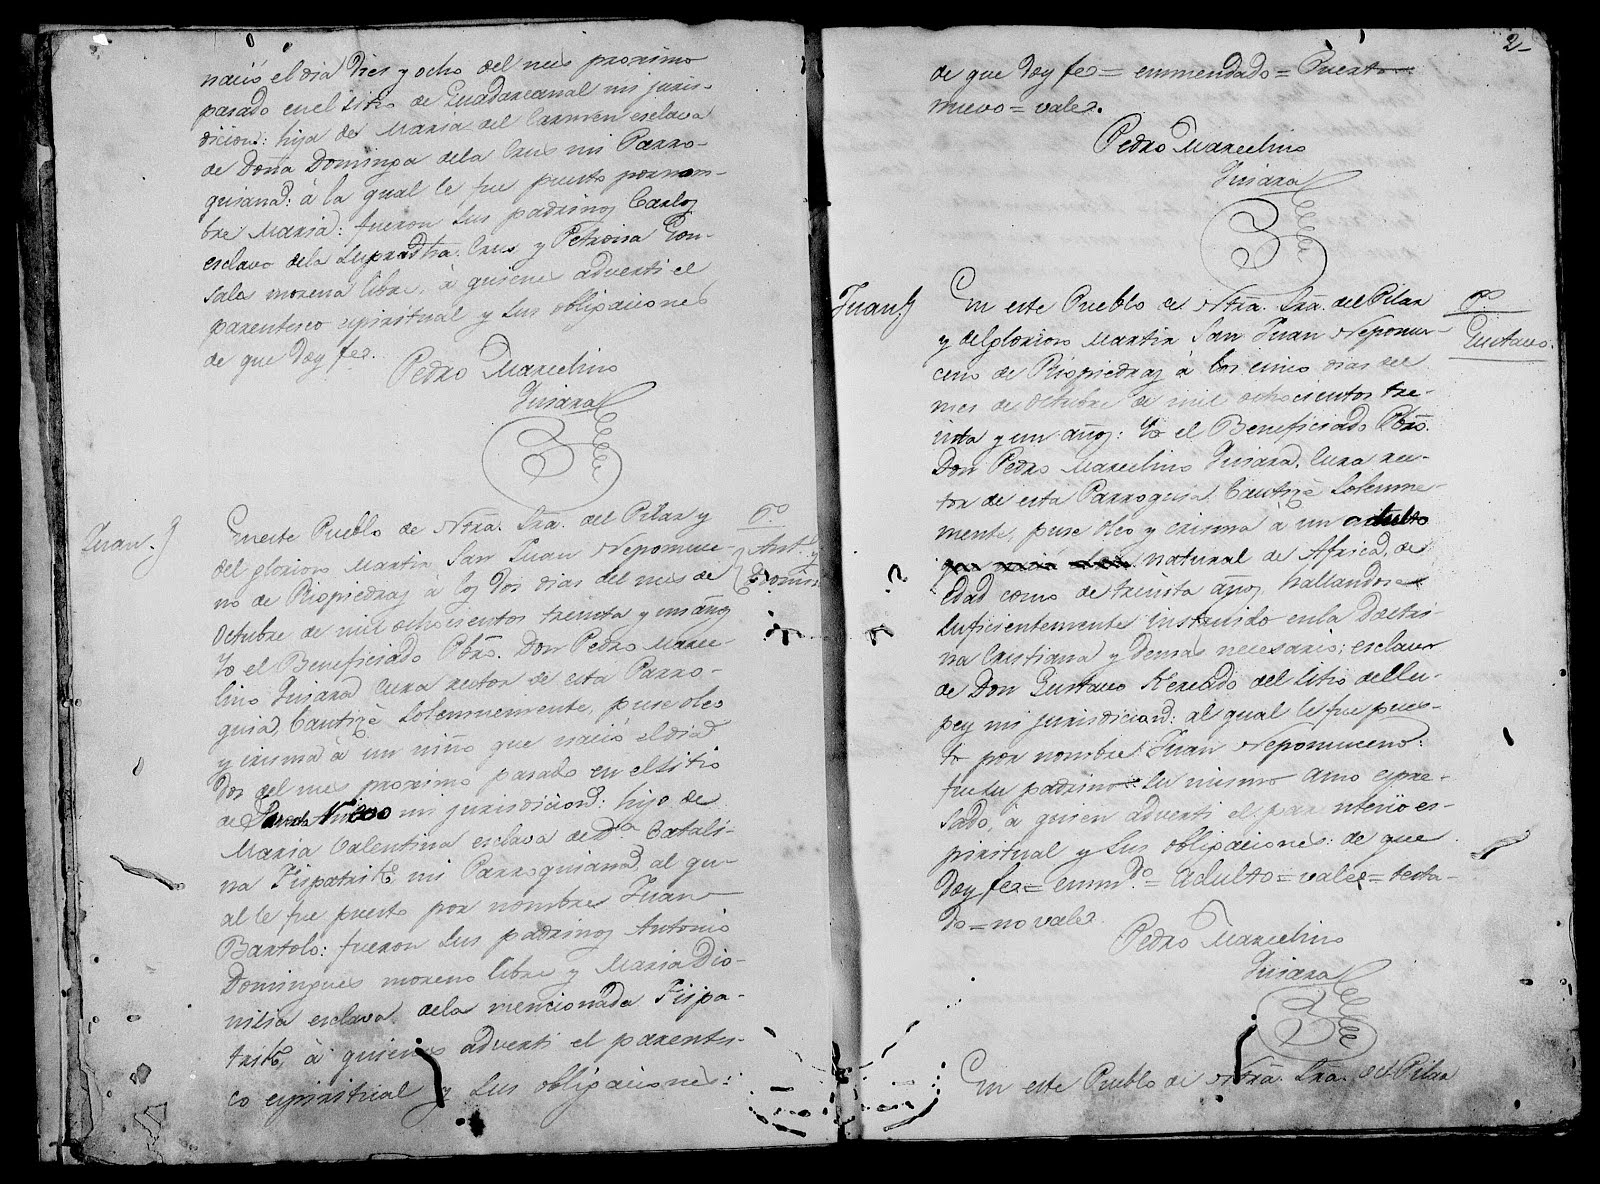 nació el dia Dies y ocho del mes proximo
pasado en el sitio de Guadarcanal mi juris-
dicion: hija de Maria del Carmen esclava
de Doña Dominga dela Crus mi Parro-
quiana: à la qual le fue puesto por nom-
bre Maria: fueron sus padrinos Carlos
esclavo dela supradtha. Crus y Petrona Gon-
sales morena libre, à quienes adverti el
parentesco espiritual y sus obligaciones
de que Doy fee.
Pedro Marcelino
Juan.
En este Pueblo de Ntra. Sra. del Pilar y
del glorioso Martir San Juan Nepomuce-
no de Riopiedras à los dos dias del mes de
Octubre de mil ochocientos treinta y un años
Yo el Beneficiado Pbro. Don Pedro Marce-
lino Cura rector de esta Parro-
quia, bautizè solemnemente, puse oleo
y crisma à un niño que nació el dia
dos del mes proximo pasado en el sitio
de mi jurisdicion: hijo de
Maria Valentina esclava de Da. Catali-
na Fispatrik mi Parroquiana, al qu-
al le fue puesto por nombre Juan
Bartolo: fueron sus padrinos Antonio
Domingues moreno libre y Maria Dio-
nisia esclava dela mencionada Fispa-
trik, à quienes adverti el parentes-
co espiritual y sus obligaciones:
Po.
Ant. y
2
de que Doy fee = enmendado = Puerto
nuevo = vale.
Pedro Marcelino
Juan
En este Pueblo de Ntra. Sra. del Pilar
y del glorioso Martir San Juan Nepomu-
ceno de Riopiedras à los cinco dias del
mes de Octubre de mil ochocientos tre-
inta y un años: Yo el Beneficiado Pbro.
Don Pedro Marcelino Cura rec-
tor de esta Parroquia, bautizè solemne-
mente, puse oleo y crisma à un adulto
natural de Africa, de
edad como de treinta años, hallandose
suficientemente instruido en la Doctri-
na Cristiana y demas necesario; esclavo
de Don Gustavo del sitio
mi jurisdicion: al qual le fue pues-
to por nombre Juan Nepomuceno:
fue su padrino su mismo amo expre-
sado, à quien adverti el parentesco es-
piritual y sus obligaciones: de que
Doy fee = enmdo. = Adulto = vale = testa-
do = no vale.
Pedro Marcelino
Po.
Gustavo.
En este Pueblo de Ntra. Sra. del Pilar